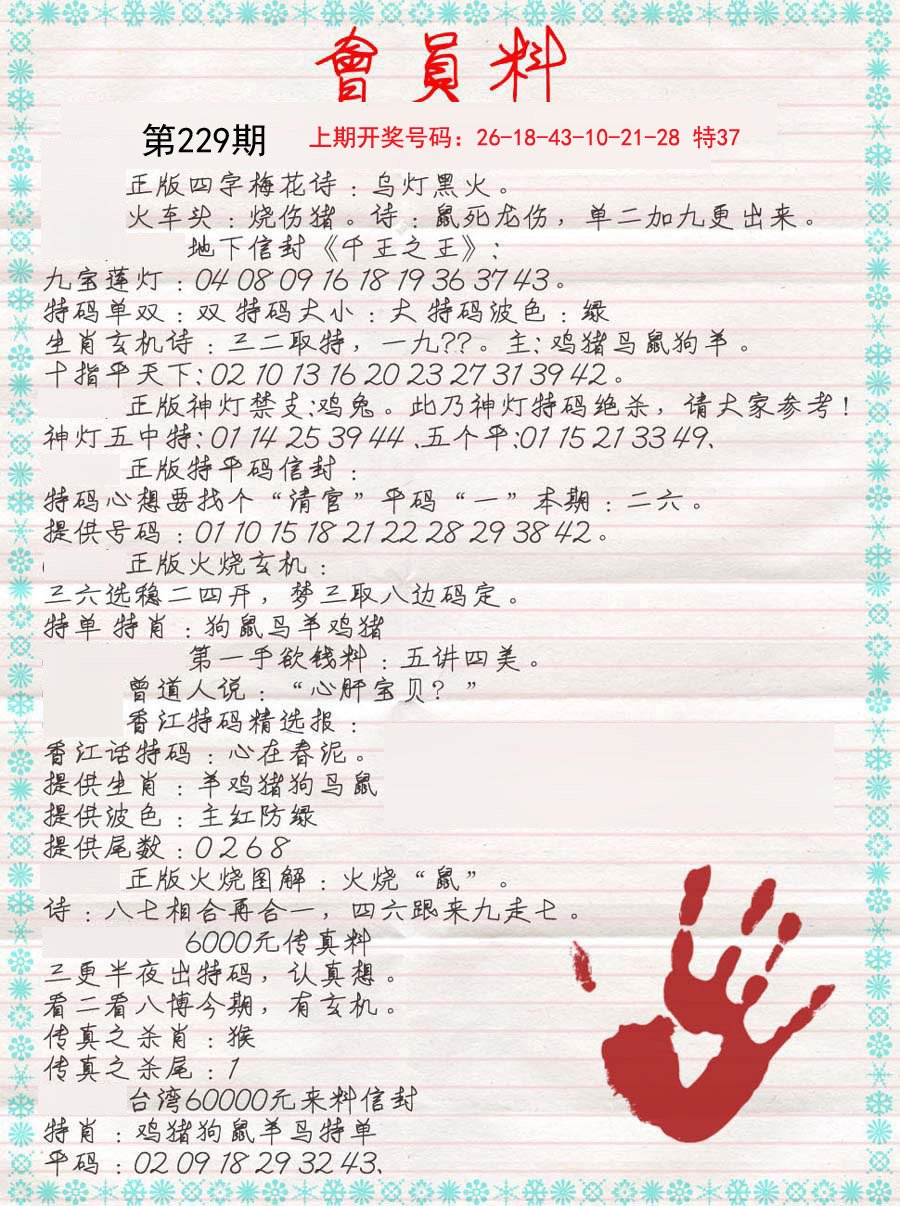 會員料
第229期 上期开奖号码：26-18-43-10-21-28 特37
正版四字梅花诗：乌灯黑火。
火车头：烧伤猪。诗：鼠死龙伤，单二加九更出来。
地下信封《千王之王》：
九宝莲灯：04 08 09 16 18 19 36 37 43。
特码单双：双 特码大小：大 特码波色：绿
生肖玄机诗：三二取特，一九??。主：鸡猪马鼠狗羊。
十指平天下：02 10 13 16 20 23 27 31 39 42。
正版神灯禁支：鸡兔。此乃神灯特码绝杀，请大家参考！
神灯五中特：01 14 25 39 44、五个平：01 15 21 33 49、
正版特平码信封：
特码心想要找个“清官”平码“一”本期：二六。
提供号码：01 10 15 18 21 22 28 29 38 42。
正版火烧玄机：
三六选稳二四开，梦三取八边码定。
特单 特肖：狗鼠马羊鸡猪
第一手欲钱料：五讲四美。
曾道人说：“心肝宝贝？”
香江特码精选报：
香江话特码：心在春泥。
提供生肖：羊鸡猪狗马鼠
提供波色：主红防绿
提供尾数：0 2 6 8
正版火烧图解：火烧“鼠”。
诗：八七相合再合一，四六跟来九走七。
6000元传真料
三更半夜出特码，认真想。
看二看八博今期，有玄机。
传真之杀肖：猴
传真之杀尾：1
台湾60000元来料信封
特肖：鸡猪狗鼠羊马特单
平码：02 09 18 29 32 43、